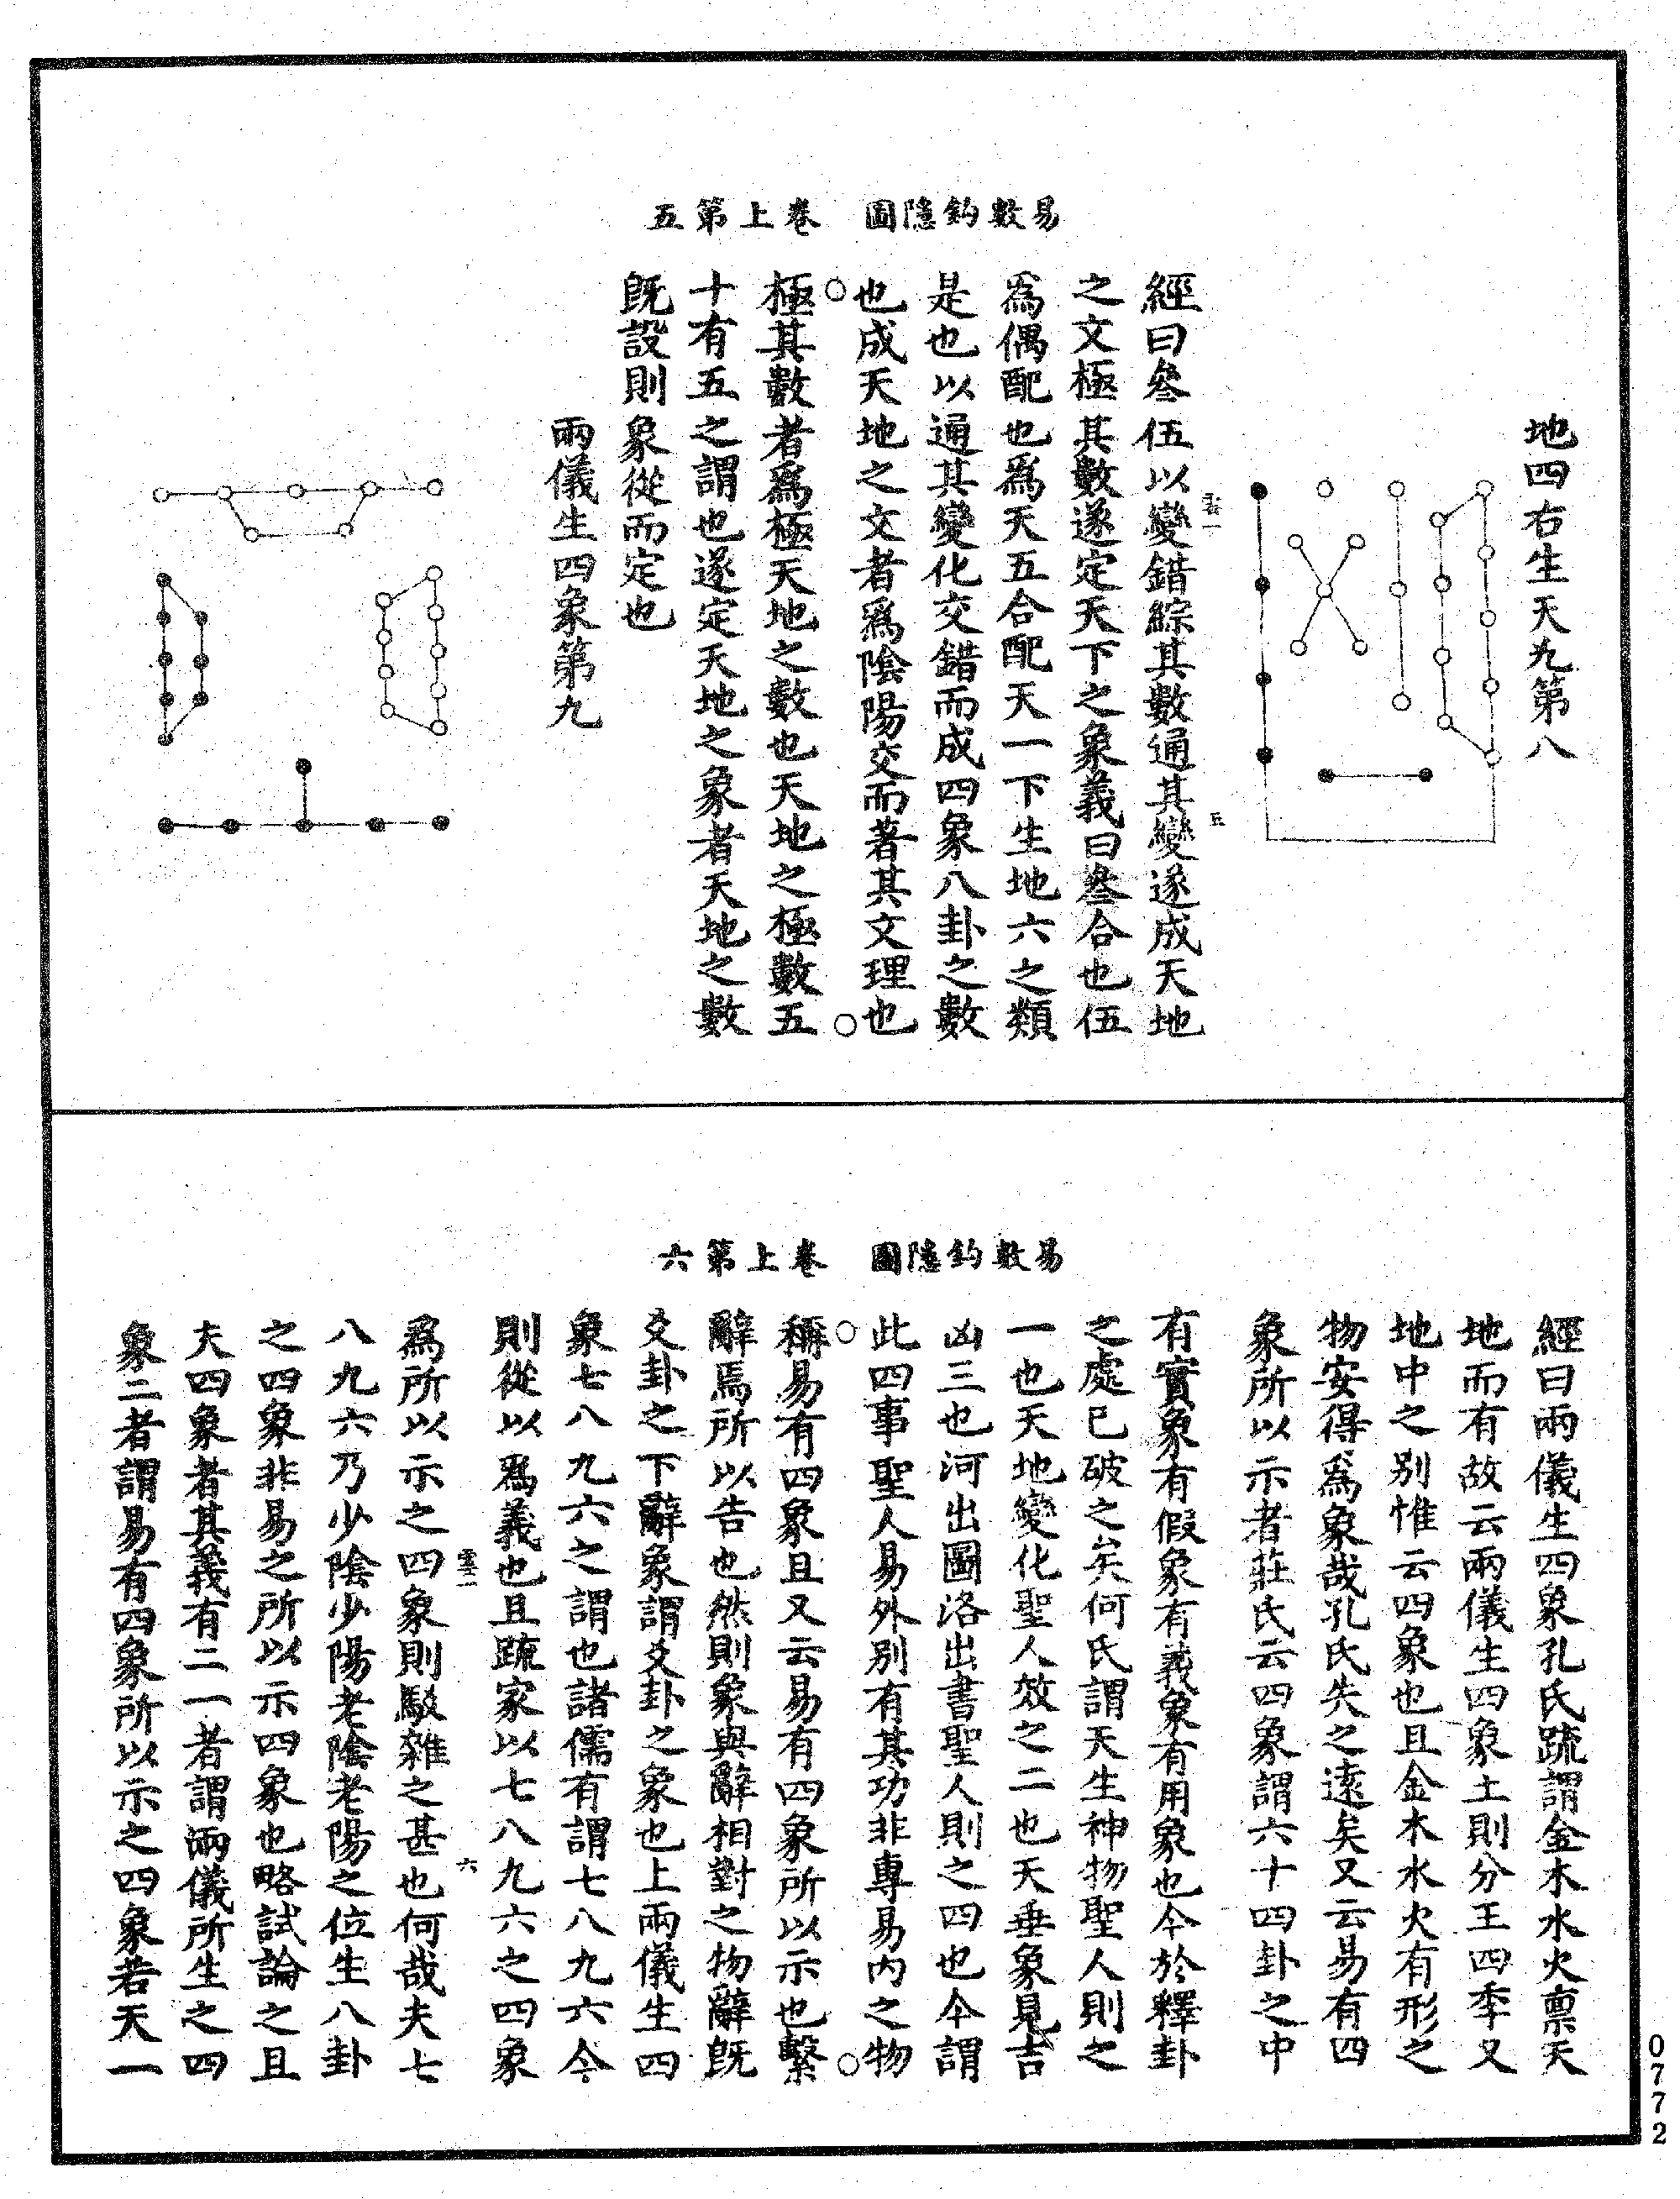 易數鈎隱圖　卷上第五
地四右生天九第八
經曰叄伍以變錯綜其數通其變遂成天地
雲一
五
之文極其數遂定天下之象義曰叄合也伍
爲偶配也爲天五合配天一下生地六之類
是也以通其變化交錯而成四象八卦之數
也成天地之文者爲陰陽交而著其文理也
極其數者爲極天地之數也天地之極數五
十有五之謂也遂定天地之象者天地之數
旣設則象從而定也
兩儀生四象第九
易數鈎隱圖　卷上第六
經曰兩儀生四象孔氏疏謂金木水火稟天
地而有故云兩儀生四象土則分王四季又
地中之別惟云四象也且金木水火有形之
物安得爲象哉孔氏失之遠矣又云易有四
象所以示者莊氏云四象謂六十四卦之中
有實象有假象有義象有用象也今於釋卦
之處已破之矣何氏謂天生神物聖人則之
一也天地變化聖人效之二也天垂象見吉
凶三也河出圖洛出書聖人則之四也今謂
此四事聖人易外別有其功非專易內之物
稱易有四象且又云易有四象所以示也繫
辭焉所以告也然則象與辭相對之物辭旣
爻卦之下辭象謂爻卦之象也上兩儀生四
象七八九六之謂也諸儒有謂七八九六今
則從以爲義也且疏家以七八九六之四象
雲一
六
爲所以示之四象則駁雜之甚也何哉夫七
八九六乃少陰少陽老陰老陽之位生八卦
之四象非易之所以示四象也略試論之且
夫四象者其義有二一者謂兩儀所生之四
象二者謂易有四象所以示之四象若天一
0772